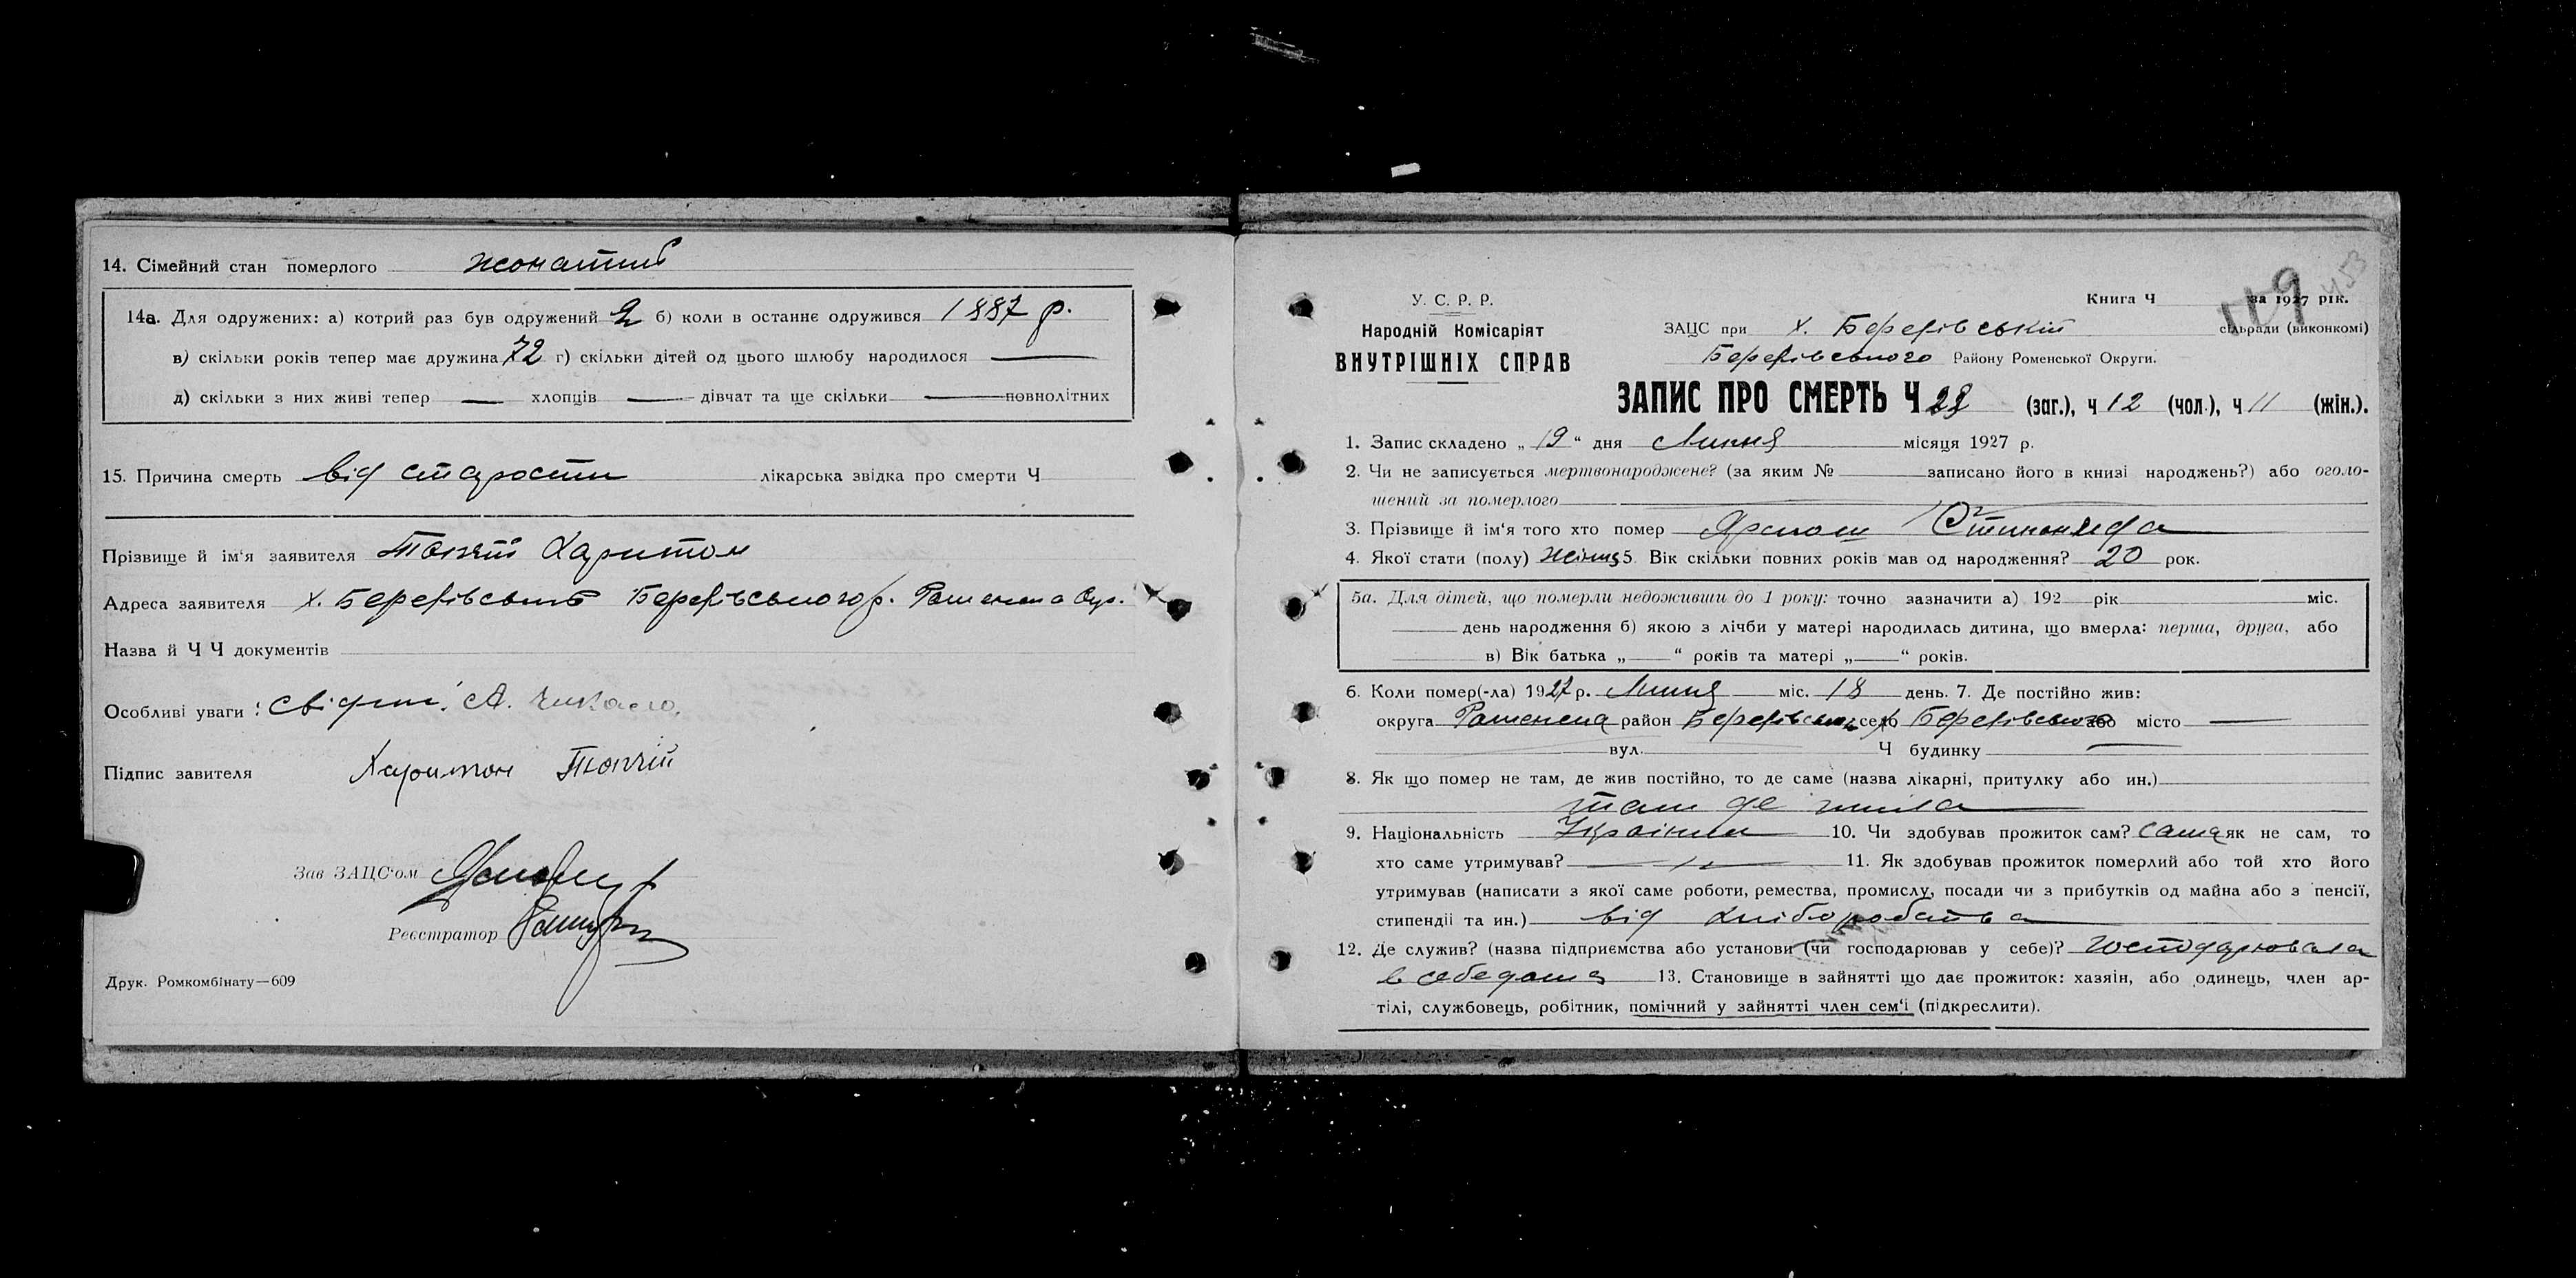 14. Сімейний стан померлого жонатий
14а. Для одружених: а) котрий раз був одружений 2 б) коли в останнє одружився 1887 р.
в) скільки років тепер має дружина 72 г) скільки дітей од цього шлюбу народилося —
д) скільки з них живі тепер — хлопців — дівчат та ще скільки — повнолітних
15. Причина смерть від старости лікарська звідка про смерти Ч
Прізвище й ім'я заявителя Харитон
Адреса заявителя х. Березівський Березівського р. Роменська Окр.
Назва й Ч Ч документів
Особливі уваги : свідки: А.
Підпис завителя Харитон
Зав ЗАЦС'ом
Реєстратор
Друк. Ромкомбінату—609
119
453
У. С. Р. Р.
Народній Комісаріят
ВНУТРІШНІХ СПРАВ
Книга Ч за 1927 рік.
ЗАЦС при х. Березівській сільради (виконкомі)
Березівського Району Роменської Округи.
ЗАПИС ПРО СМЕРТЬ Ч 23 (заг.), ч 12 (чол.), ч 11 (жін.).
1. Запис складено „ 19 “ дня Липня місяця 1927 р.
2. Чи не записується мертвонароджене? (за яким № записано його в книзі народжень?) або оголо-
шений за померлого
3. Прізвище й ім'я того хто помер
4. Якої стати (полу) 5. Вік скільки повних років мав од народження? 20 рок.
5а. Для дітей, що померли недоживши до 1 року: точно зазначити а) 192 рік міс.
день народження б) якою з лічби у матері народилась дитина, що вмерла: перша, друга, або
в) Вік батька „—“ років та матері „—“ років.
6. Коли помер(-ла) 1927 р. Липня міс. 18 день. 7. Де постійно жив:
округа Роменська район Березівський село Березівського або місто —
вул. Ч будинку —
8. Як що помер не там, де жив постійно, то де саме (назва лікарні, притулку або ин.)
там де жила
9. Національність Українка 10. Чи здобував прожиток сам? сама як не сам, то
хто саме утримував? — 11. Як здобував прожиток померлий або той хто його
утримував (написати з якої саме роботи, ремества, промислу, посади чи з прибутків од майна або з пенсії,
стипендії та ин.) від хліборобства
12. Де служив? (назва підприємства або установи (чи господарював у себе)? господарювала
в себе дома 13. Становище в зайнятті що дає прожиток: хазяін, або одинець, член ар-
тілі, службовець, робітник, помічний у зайнятті член сем'ї (підкреслити).